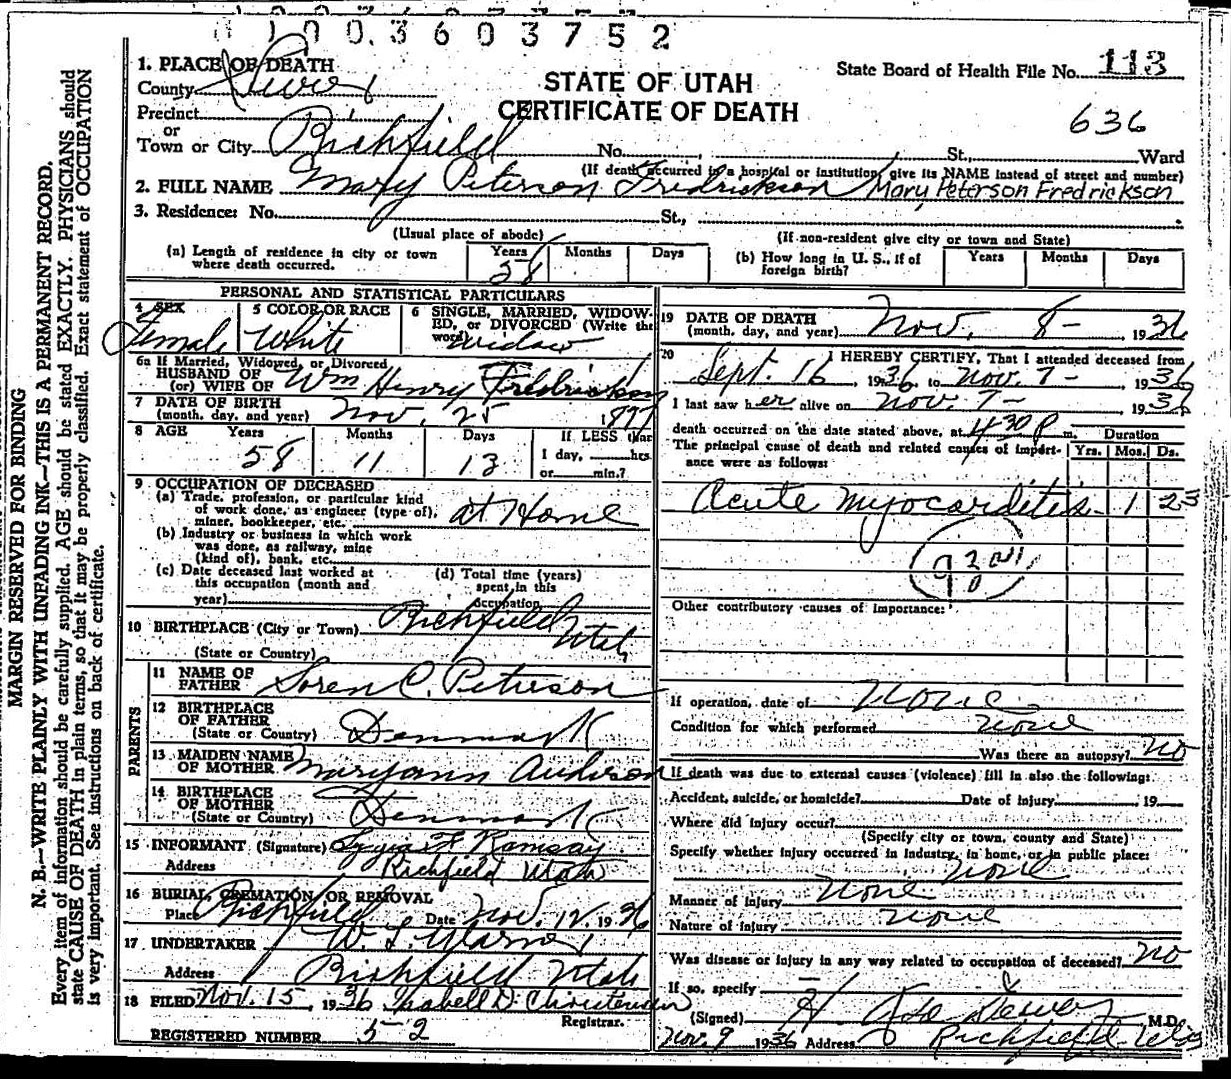 1003603752
1. PLACE OF DEATH
County Sevier
STATE OF UTAH
CERTIFICATE OF DEATH
State Board of Health File No. 113
636
Precinct
or
Town or City Richfield No. St., Ward
(If death occurred in a hospital or institution, give its NAME instead of street and number)
2. FULL NAME Mary Peterson Fredrickson Mary Peterson Fredrickson
3. Residence: No. St.,
(Usual place of abode) (If non-resident give city or town and State)
(a) Length of residence in city or town where death occurred. Years 58 Months Days
(b) How long in U. S., if of foreign birth? Years Months Days
PERSONAL AND STATISTICAL PARTICULARS
4 SEX 5 COLOR OR RACE 6 SINGLE, MARRIED, WIDOWED, or DIVORCED (Write the word)
Female White Widow
6a If Married, Widowed, or Divorced
HUSBAND OF
(or) WIFE OF Wm Henry Fredrickson
7 DATE OF BIRTH
(month, day, and year) Nov. 25 1877
8 AGE Years Months Days If LESS than
58 11 13 1 day, hrs.
or min.?
9 OCCUPATION OF DECEASED
(a) Trade, profession, or particular kind
of work done, as engineer (type of),
miner, bookkeeper, etc. at Home
(b) Industry or business in which work
was done, as railway, mine
(kind of), bank, etc.
(c) Date deceased last worked at
this occupation (month and
year)
(d) Total time (years)
spent in this
occupation
10 BIRTHPLACE (City or Town) Richfield
(State or Country) Utah
PARENTS
11 NAME OF
FATHER Soren C. Peterson
12 BIRTHPLACE
OF FATHER
(State or Country) Denmark
13 MAIDEN NAME
OF MOTHER Maryann Anderson
14 BIRTHPLACE
OF MOTHER
(State or Country) Denmark
15 INFORMANT (Signature) F. Ramsay
Address Richfield Utah
16 BURIAL, CREMATION, OR REMOVAL
Place Richfield Date Nov. 12, 1936
17 UNDERTAKER W. L.
Address Richfield Utah
18 FILED Nov. 15, 1936 Isabell D. Christensen
Registrar.
REGISTERED NUMBER 52
19 DATE OF DEATH
(month, day, and year) Nov. 8- 1936
20 I HEREBY CERTIFY, That I attended deceased from
Sept. 16, 1936, to Nov. 7- 1936
I last saw her alive on Nov. 7- 1936
death occurred on the date stated above, at 4:30 P m. Duration
The principal cause of death and related causes of importance were as follows: Yrs. Mos. Ds.
Acute myocarditis 1 23
Other contributory causes of importance:
If operation, date of none
Condition for which performed none
Was there an autopsy? no
If death was due to external causes (violence) fill in also the following:
Accident, suicide, or homicide? Date of injury 19
Where did injury occur?
(Specify city or town, county and State)
Specify whether injury occurred in industry, in home, or in public place:
none
Manner of injury none
Nature of injury none
Was disease or injury in any way related to occupation of deceased? no
If so, specify
(Signed) M.D.
Nov. 9 1936 Address Richfield Utah
MARGIN RESERVED FOR BINDING
N. B.—WRITE PLAINLY WITH UNFADING INK—THIS IS A PERMANENT RECORD.
Every item of information should be carefully supplied. AGE should be stated EXACTLY. PHYSICIANS should
state CAUSE OF DEATH in plain terms, so that it may be properly classified. Exact statement of OCCUPATION
is very important. See instructions on back of certificate.